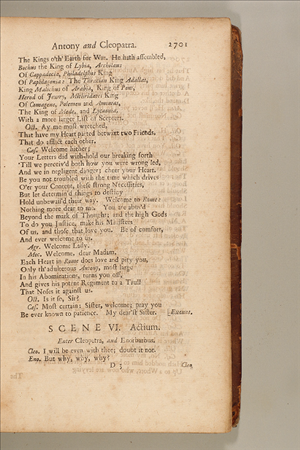 Antony and Cleopatra. 2701
The Kings o'th' Earth for War. He hath assembled,
Bochus the King of Lybia, Archelaus
Of Cappadocia, Philadelphus King
Of Paphlagonia: The Thracian King Adullas,
King Malichus of Arabia, King of Pont,
Herod of Jewry, Mithridates King
Of Comagene, Polemen and Amintas,
The King of Mede, and Lycaonia,
With a more larger List of Scepters.
Oct. Ay me most wretched,
That have my Heart parted betwixt two Friends,
That do afflict each other.
Cæs. Welcome hither;
Your Letters did with-hold our breaking forth
'Till we perceiv'd both how you were wrong led,
And we in negligent danger; cheer your Heart.
Be you not troubled with the time which drives
O'er your Content, these strong Necessities,
But let determin'd things to destiny
Hold unbewail'd their way. Welcome to Rome:
Nothing more dear to me. You are abus'd
Beyond the mark of Thought; and the high Gods
To do you Justice, make his Ministers
Of us, and those that love you. Be of comfort,
And ever welcome to us.
Agr. Welcome Lady.
Mec. Welcome, dear Madam,
Each Heart in Rome does love and pity you,
Only th' adulterous Antony, most large
In his Abominations, turns you off,
And gives his potent Regiment to a Trull
That Noses it against us.
Oct. Is it so, Sir?
Cæs. Most certain: Sister, welcome; pray you
Be ever known to patience. My dear'st Sister. [Exeunt.
SCENE VI. Actium.
Enter Cleopatra, and Enobarbus.
Cleo. I will be even with thee; doubt it not.
Eno. But why, why, why?
D 5 Cleo.